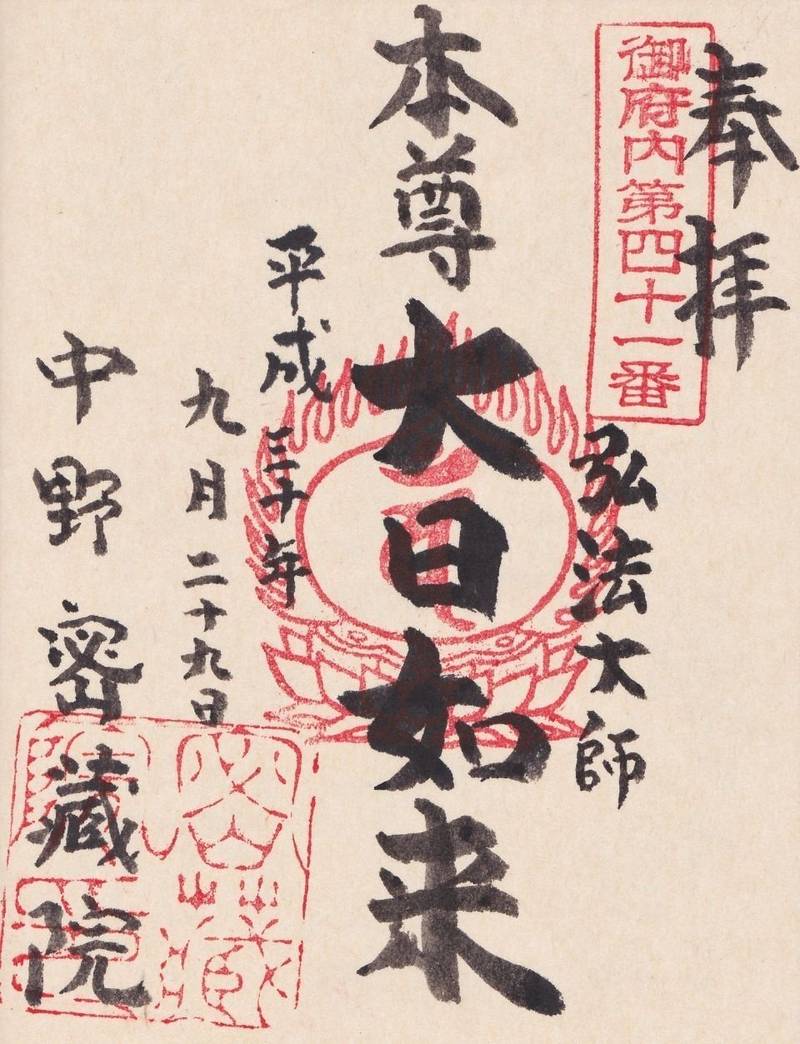 奉拝
御府内第四十一番
弘法大師
本尊大日如来
平成三十年
九月二十九日
中野密蔵院